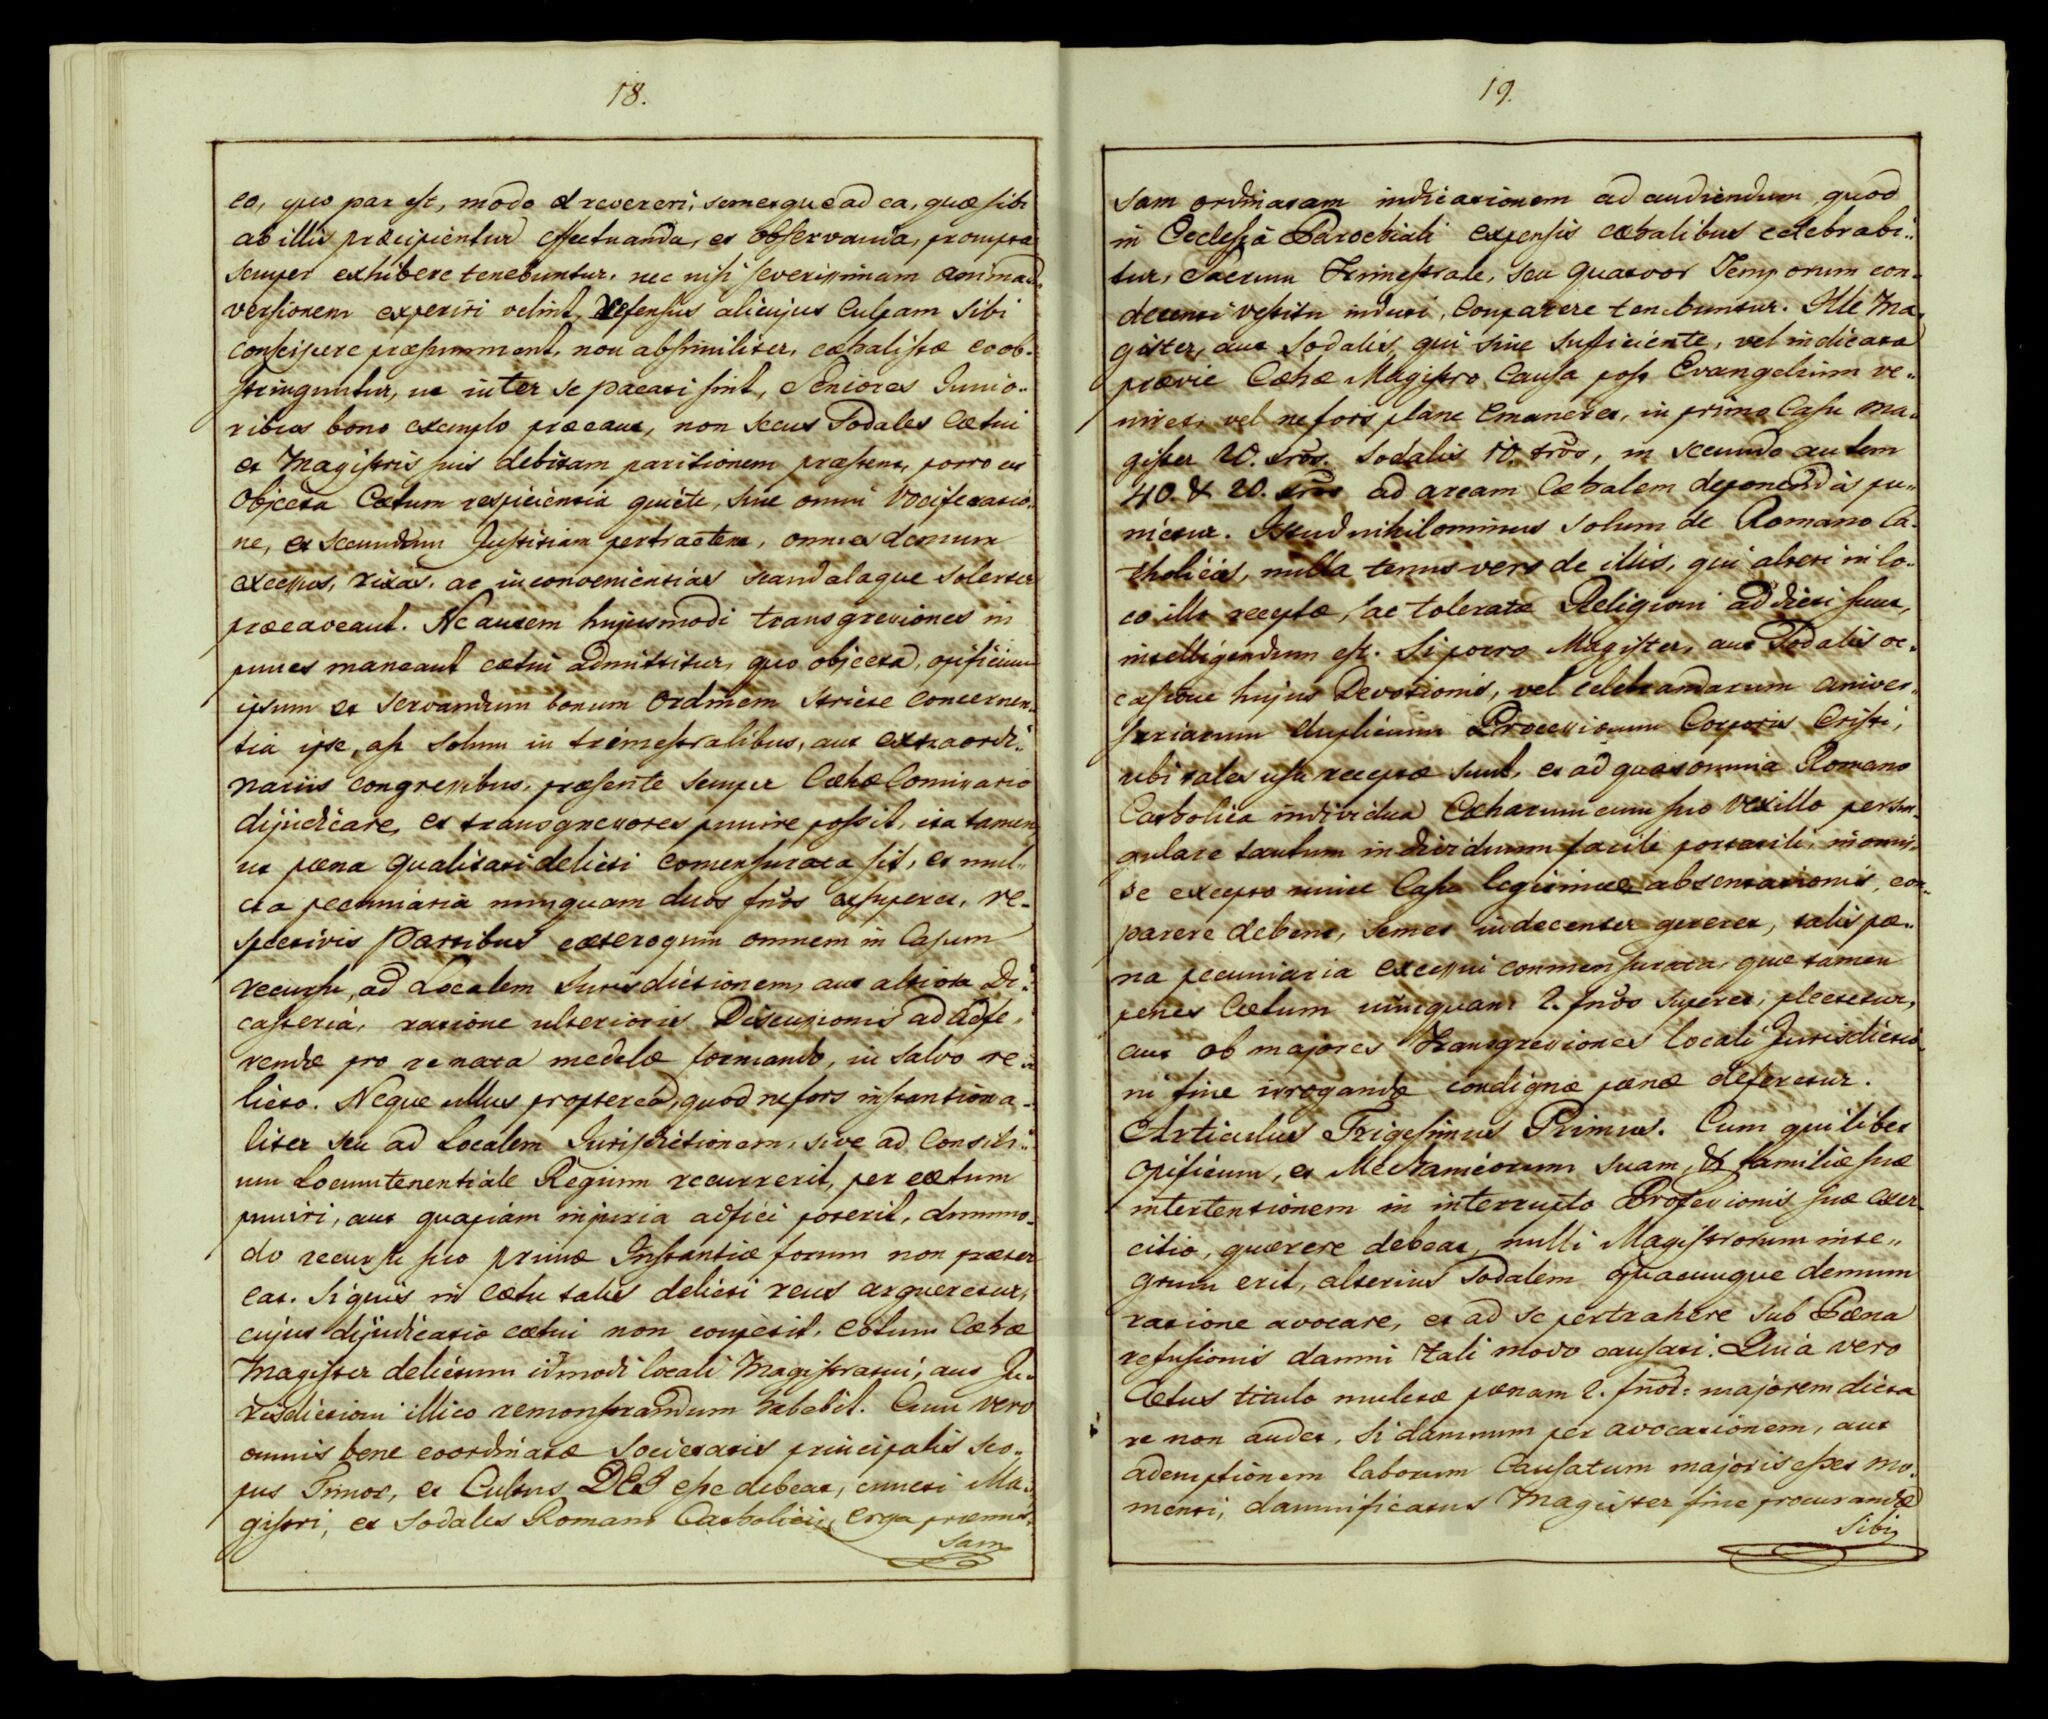 18.
eo, quo par est, modo & revereri, semetque ad ea, quæ sibi
ab illis præcipientur effectuanda, et observanda, prompta
semper exhibere tenebuntur, nec nisi severissimam animad-
versionem experiri velint, refensus alicujus Culpam Sibi
Conscipere præsummant, non absimiliter, cæhalistæ eo ob-
stringuntur, ut inter se pacati sint, Seniores Junio-
ribus bono exemplo præeant, non secus Sodales Cætui
et Magistris suis debitam paritionem præstent, porro et
Objecta Cætum respicientia quiete, sine omni Vociferatio-
ne, et secundum Justitiam pertractent, omnes demum
excessus, rixas, ac inconvenientias scandalaque solerter
præcaveant. Ne autem hujusmodi transgressiones in
punes maneant cætui admittitur, quo objecta, opificium
ipsum et servandum bonum Ordinem stricte concernen-
tia ipse, ast solum in trimestralibus, aut extraordi-
nariis congressibus, præsente semper Cæhæ Comissario
dijudicare, et transgressores punire possit, ita tamen
ut pæna qualitati delicti comensurata sit, et mul-
cta pecuniaria nunquam duos fnos exsuperet, re-
spectivis Partibus cæteroquin omnem in Casum
recursu, ad Localem Jurisdictionem, aut altiora Di-
casteria, ratione ulterioris Discussionis ad adfe-
rendæ pro re nata medelæ formando, in salvo re-
licto. Neque ullus propterea, quod nefors instantiona-
liter seu ad Localem Jurisdictionem, sive ad Consili-
um Locumtenentiale Regium recurrerit, per cætum
puniri, aut quapiam injuria adfici poterit, dummo-
do recursu suo primæ Instantiæ forum non præter
eat. Siquis in Cætu talis delicti reus argueretur,
cujus dijudicatio cætui non competit, eotum Cæhæ
Magister delictum idmodi locali Magistratui, aut Ju-
risdictioni illico remonstrandum habebit. Cum vero
omnis bene coordinatæ Societatis principalis sco-
pus Timor, et Cultus DEI esse debeat, cuncti Ma-
gistri, et Sodales Romano Catholici, erga præmis-
sam
19.
sam ordinatam indicationem ad audiendum, quod
in Ecclesia Parochiali expensis cæhalibus celebrabi-
tur, Sacrum Trimestrale, seu quatuor Temporum con-
decenti vestitu induti, Comparere tenebuntur. Ille Ma-
gister, aut Sodalis, qui sine suficiente, vel indicata
prævie Cæhæ Magistro Causa post Evangelium ve-
niret, vel nefors plane Emaneret, in primo Casu Ma-
gister 20. xros. Sodalis 10. xros, in secundo autem
40. & 20. xros ad arcam Cæhalem deponendas pu-
nietur. Istud nihilominus solum de Romano Ca-
tholicis, nulla tenus vero de illis, qui alteri in lo-
co illo receptæ, ac toleratæ Religioni addicti sunt,
intelligendum est. Si porro Magister, aut Sodalis oc-
casione hujus Devotionis, vel celebrandarum aniver-
sariarum duplicium Processionum Corporis Cristi,
ubi tales usu receptæ sunt, et ad quas omnia Romano
Catholica individua Cæharum cum suo vexillo per sin-
gulare tantum individuum facile portatili, niomni-
se excepto unice Casu legitimæ absentationis, com-
parere debent, semet indecenter gereret, talis pæ-
na pecuniaria excessui conmensurata, quæ tamen
penes Cætum nunquam 2. fnos superet, plectetur,
aut ob majores transgressiones locali Jurisdictio-
ni fine irrogandæ condignæ pænæ deferetur.
Articulus Trigesimus Primus. Cum quilibet
Opificum, et Mechanicorum suam, & familiæ suæ
intertentionem in interrupto Professionis suæ Exer-
citio, quærere debeat, nulli Magistrorum inte-
grum erit, alterius sodalem quacunque demum
ratione avocare, et ad se pertrahere sub Pæna
refusionis damni tali modo causati. Quia vero
Cætus titulo mulctæ pænam 2. fnor: majorem dicta
re non audet, si damnum per avocationem, aut
ademptionem laborum Causatum majoris esset mo-
menti, damnificatus Magister fine procurandæ
sibi